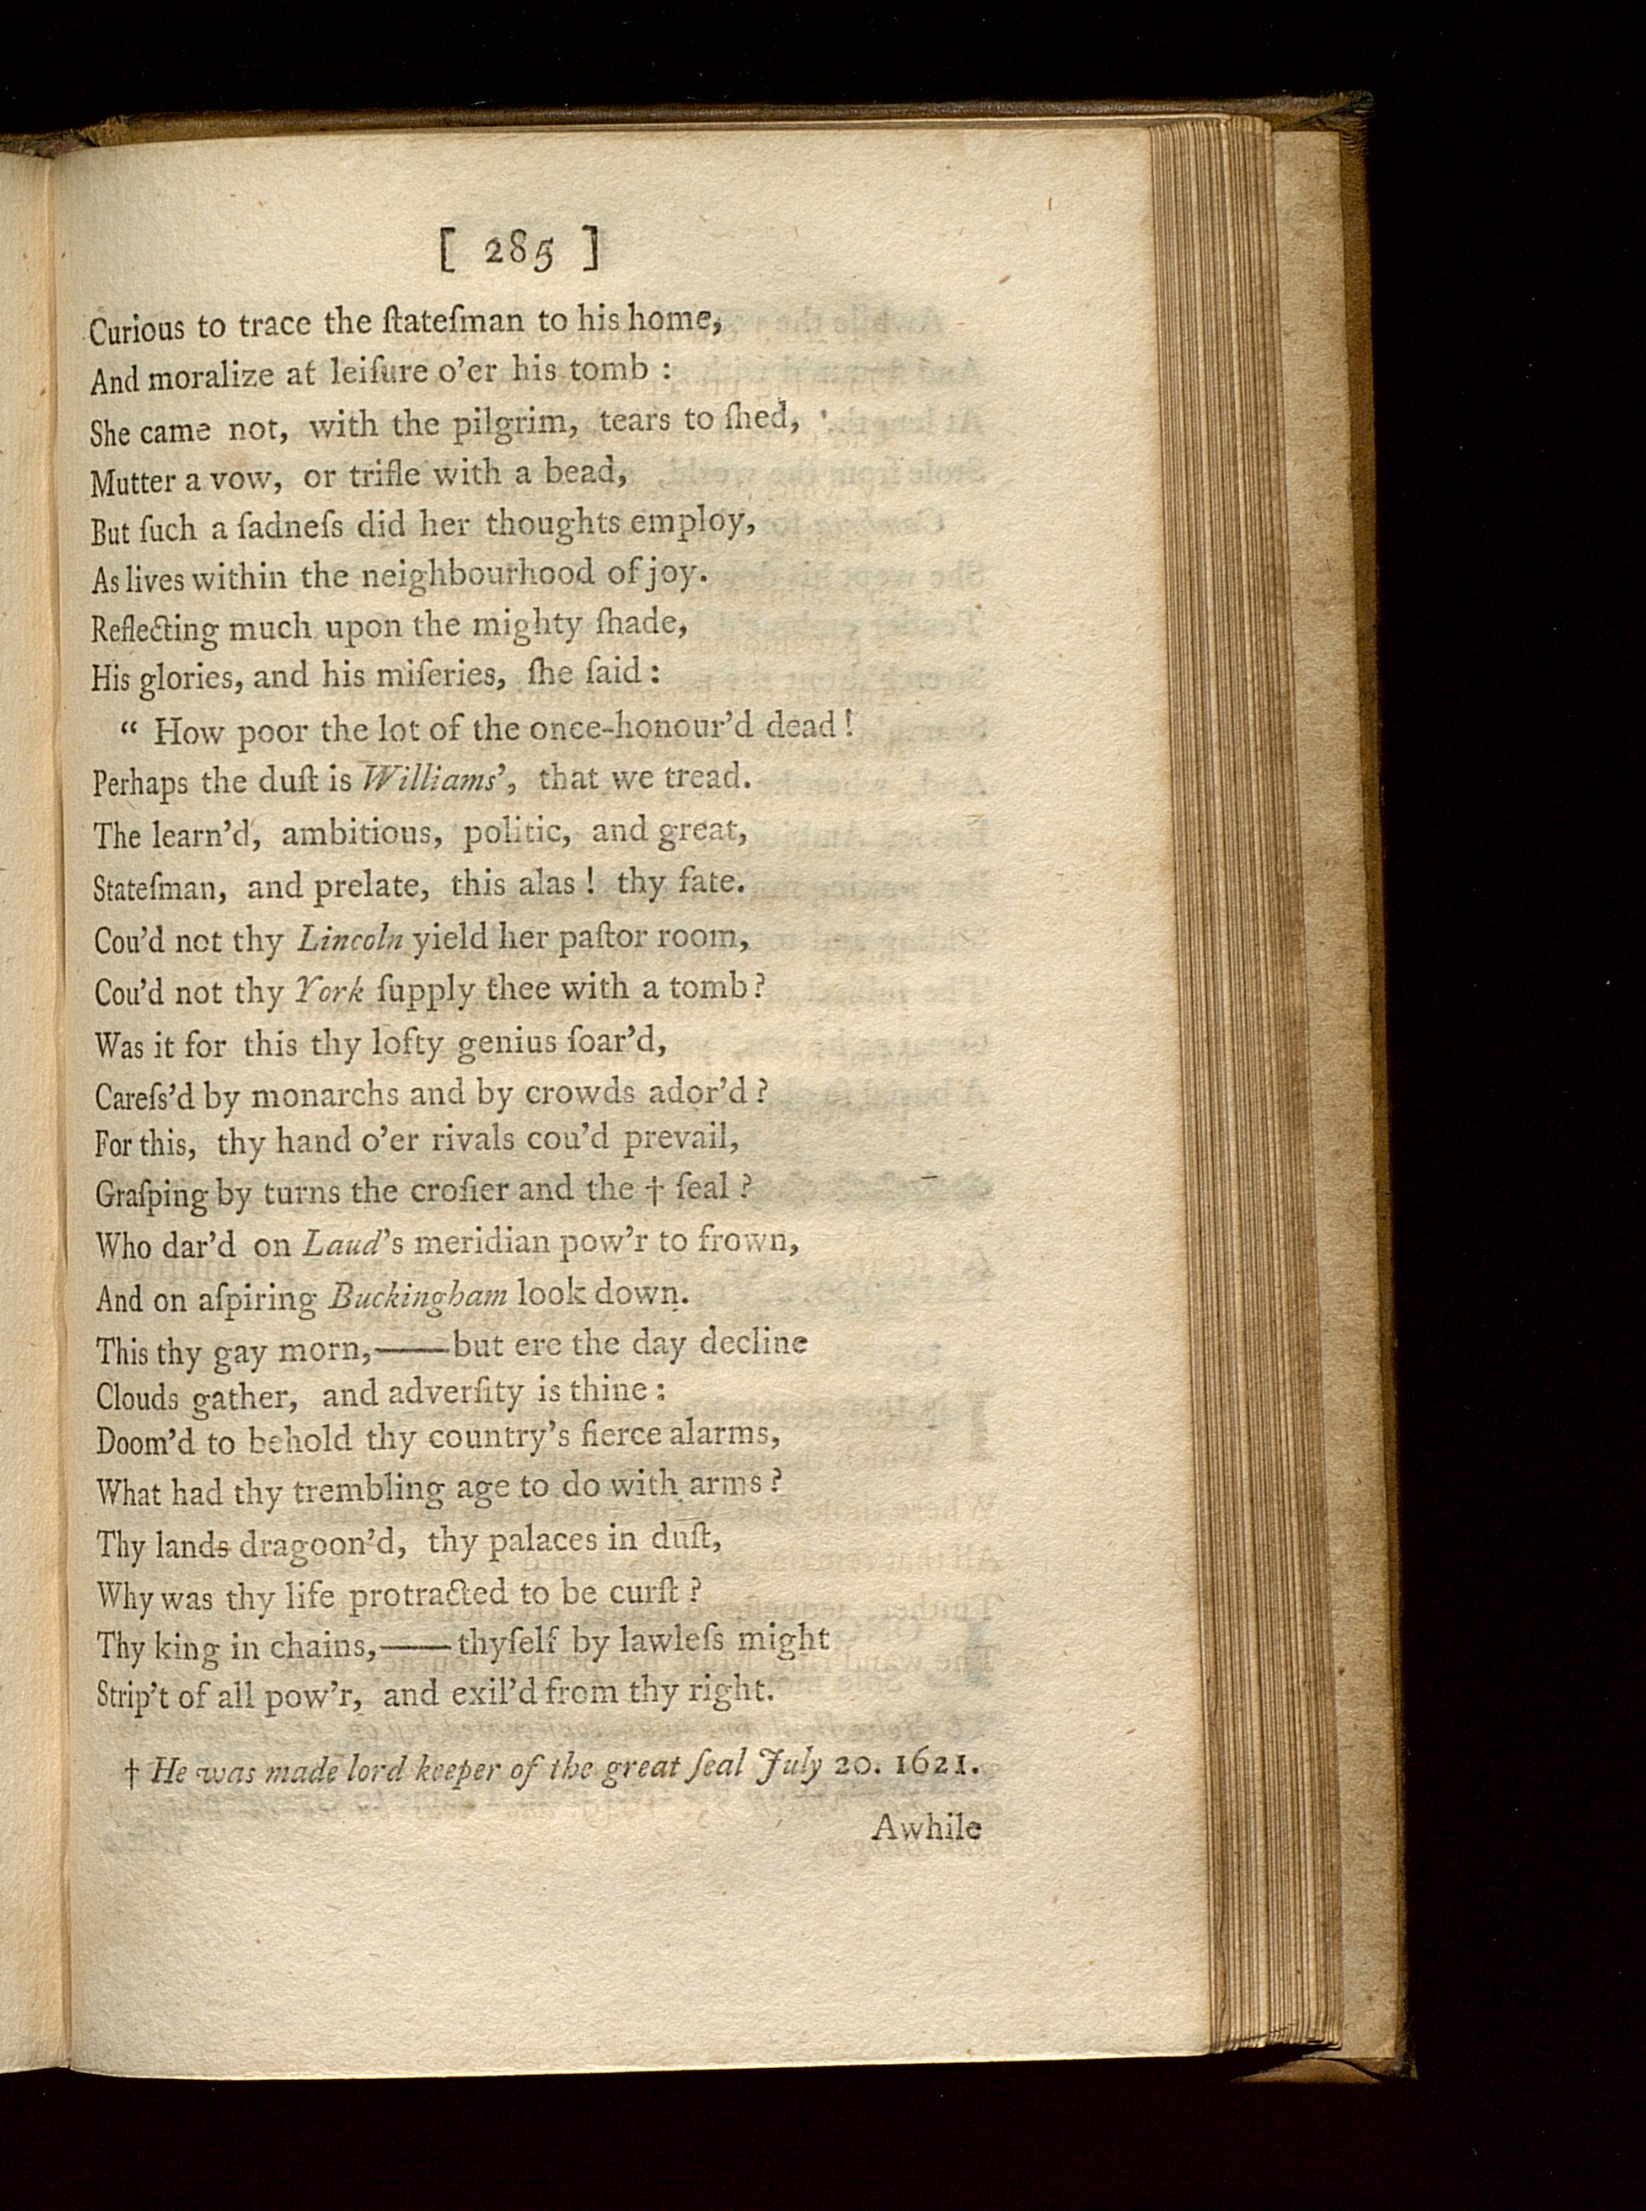 [ 285 ]
Curious to trace the ſtateſman to his home,
And moralize at leiſure o'er his tomb :
She came not, with the pilgrim, tears to ſhed,
Mutter a vow, or trifle with a bead,
But ſuch a ſadneſs did her thoughts employ,
As lives within the neighbourhood of joy.
Reflecting much upon the mighty ſhade,
His glories, and his miſeries, ſhe ſaid :
“ How poor the lot of the once-honour'd dead !
Perhaps the duſt is Williams', that we tread.
The learn'd, ambitious, politic, and great,
Stateſman, and prelate, this alas ! thy fate.
Cou'd not thy Lincoln yield her paſtor room,
Cou'd not thy York ſupply thee with a tomb ?
Was it for this thy lofty genius ſoar'd,
Careſs'd by monarchs and by crowds ador'd ?
For this, thy hand o'er rivals cou'd prevail,
Graſping by turns the croſier and the † ſeal ?
Who dar'd on Laud's meridian pow'r to frown,
And on aſpiring Buckingham look down.
This thy gay morn,——but ere the day decline
Clouds gather, and adverſity is thine :
Doom'd to behold thy country's fierce alarms,
What had thy trembling age to do with arms ?
Thy lands dragoon'd, thy palaces in duſt,
Why was thy life protracted to be curſt ?
Thy king in chains,——thyſelf by lawleſs might
Strip't of all pow'r, and exil'd from thy right.
† He was made lord keeper of the great ſeal July 20. 1621.
Awhile